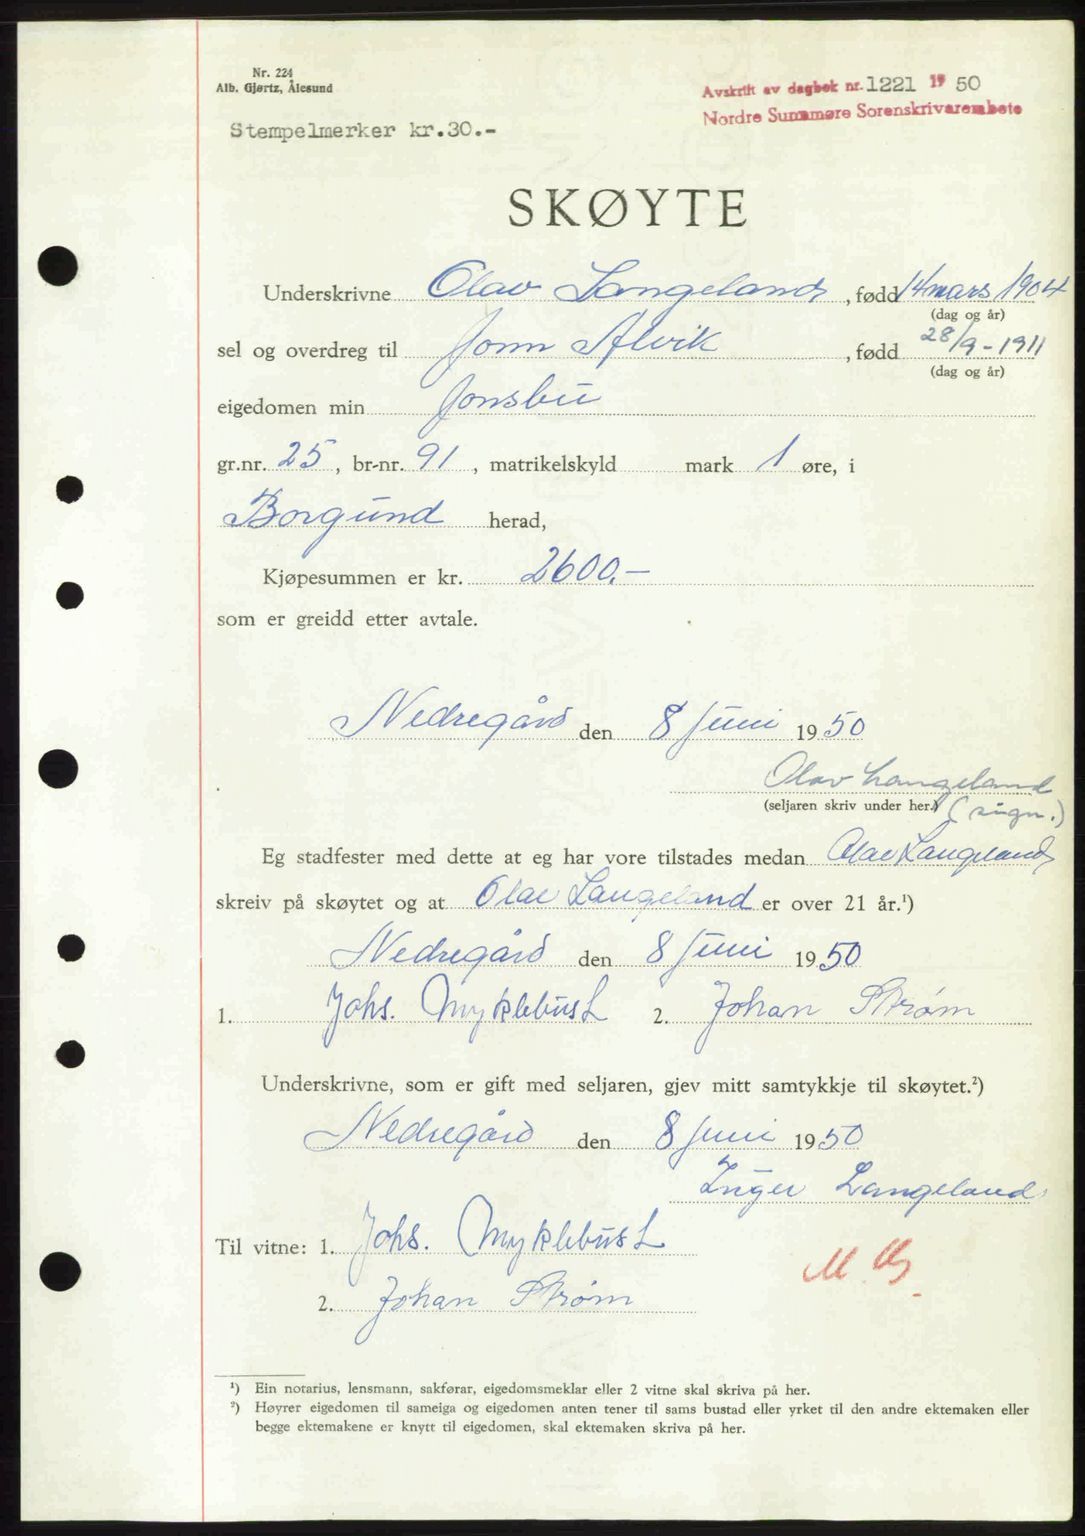 Nr. 224
Alb. Gjørtz, Ålesund
Avskrift av dagbok nr. 1221 19 50
Nordre Sunnmøre Sorenskrivarembete
Stempelmerker kr.30.-
SKØYTE
Underskrivne Olav Langeland, fødd 14 mars 1904
(dag og år)
sel og overdreg til Jonn Alvik, fødd 28/9-1911
(dag og år)
eigedomen min Jonsbu
gr.nr. 25, br-nr. 91, matrikelskyld mark 1 øre, i
Borgund herad,
Kjøpesummen er kr. 2600.-
som er greidd etter avtale.
Nedregård den 8 juni 1950
Olav Langeland
(seljaren skriv under her.) (sign.)
Eg stadfester med dette at eg har vore tilstades medan Olav Langeland
skreiv på skøytet og at Olav Langeland er over 21 år.¹)
Nedregård den 8 juni 1950
1. Johs. Myklebust 2. Johan Strøm
Underskrivne, som er gift med seljaren, gjev mitt samtykkje til skøytet.²)
Nedregård den 8 juni 1950
Inger Langeland
Til vitne: 1. Johs. Myklebust
2. Johan Strøm
¹) Ein notarius, lensmann, sakførar, eigedomsmeklar eller 2 vitne skal skriva på her.
²) Høyrer eigedomen til sameiga og eigedomen anten tener til sams bustad eller yrket til den andre ektemaken eller
begge ektemakene er knytt til eigedomen, skal ektemaken skriva på her.